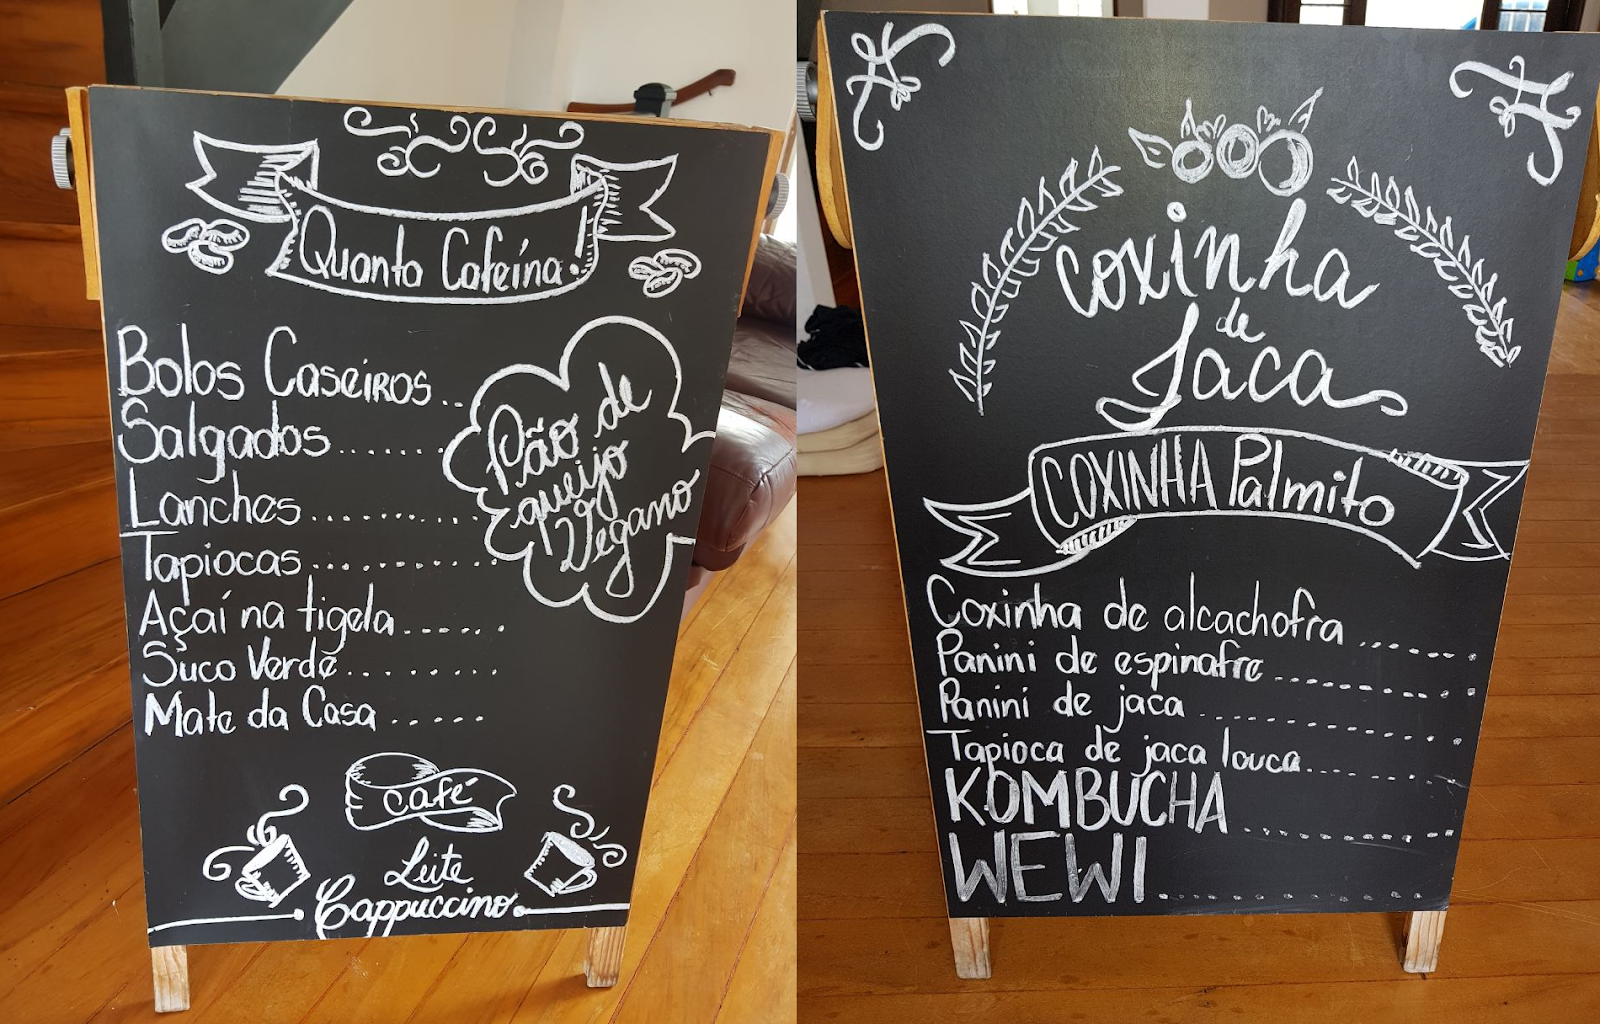 Quanta Cafeína!
Bolos Caseiros..
Salgados.......
Lanches...........
Tapiocas............
Açaí na tigela.......
Suco Verde........
Mate da Casa.....
Pão de
queijo
Vegano
café
Leite
Cappuccino
coxinha
de
Jaca
COXINHA Palmito
Coxinha de alcachofra.......
Panini de espinafre............
Panini de jaca................
Tapioca de jaca louca........
KOMBUCHA............
WEWI................